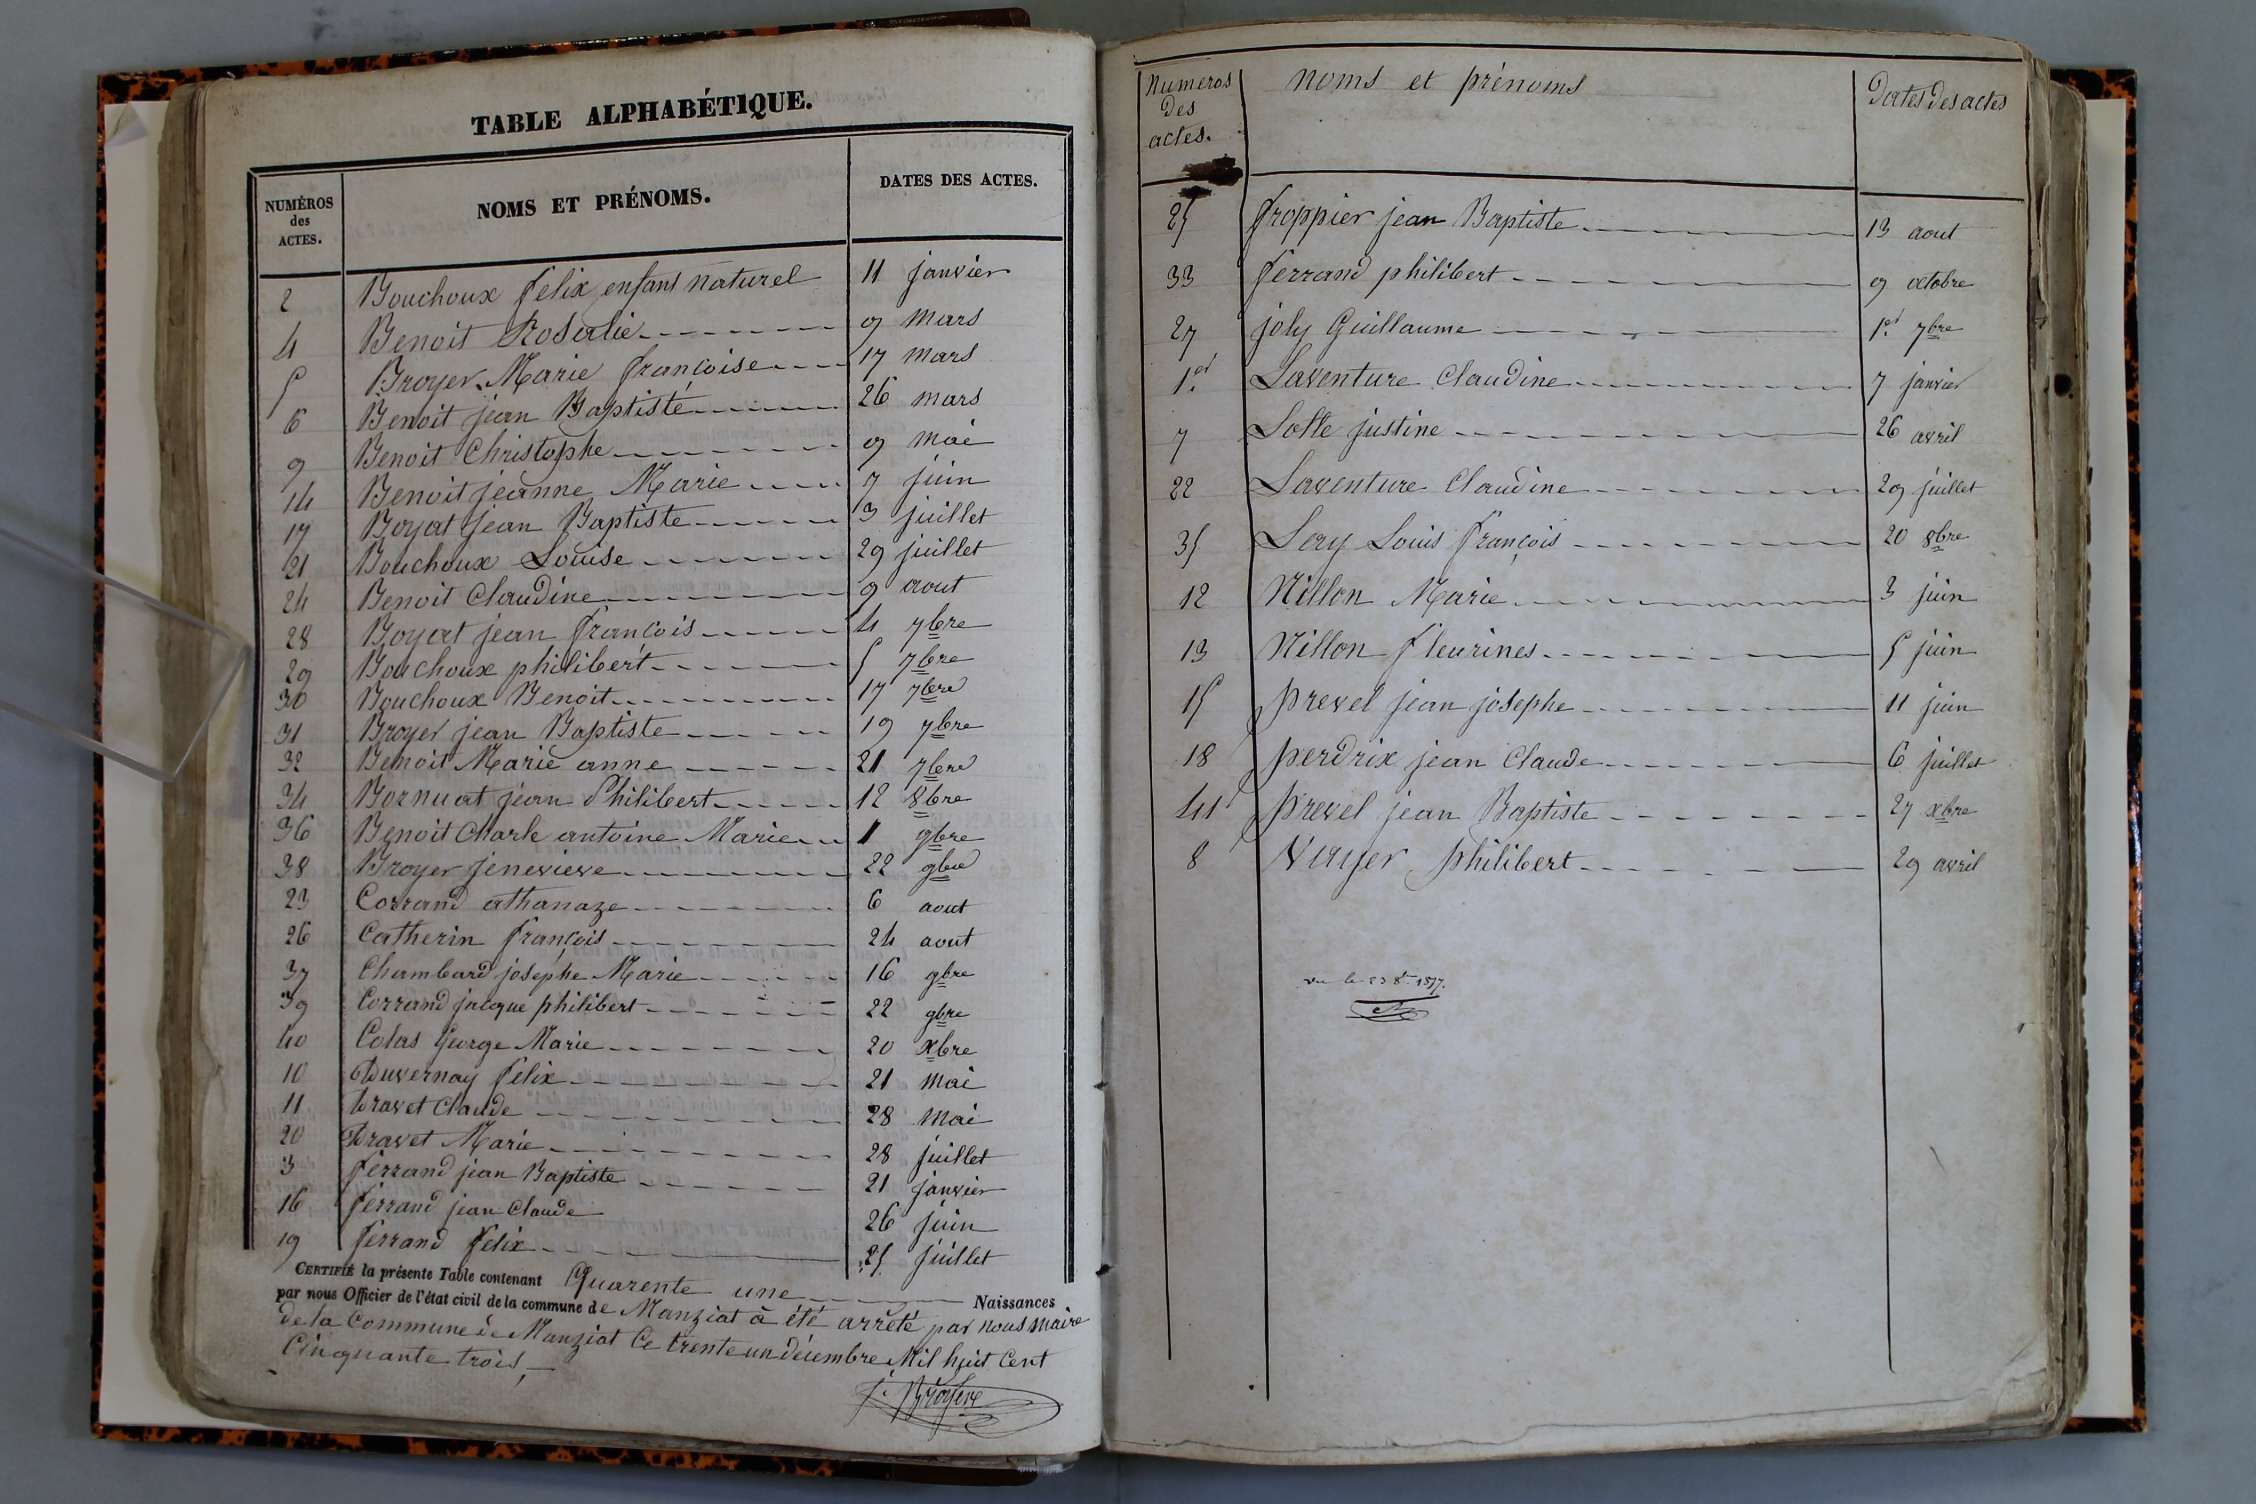 TABLE ALPHABÉTIQUE.
NUMÉROS des ACTES. NOMS ET PRÉNOMS. DATES DES ACTES.
2 Bouchoux felix enfant naturel 11 janvier
4 Benoit Rosalie 9 mars
5 Broyer Marie françoise 17 mars
6 Benoit jean Baptiste 26 mars
9 Benoit Christophe 9 mai
14 Benoit jeanne Marie 7 juin
17 Boyat jean Baptiste 3 juillet
21 Bouchoux Louise 29 juillet
24 Benoit Claudine 9 aout
28 Boyat jean françois 4 7bre
29 Bouchoux philibert 5 7bre
30 Bouchoux Benoit 17 7bre
31 Broyer jean Baptiste 19 7bre
32 Benoit Marie anne 21 7bre
34 Bornuat jean Philibert 12 8bre
36 Benoit Charle antoine Marie 1 9bre
38 Broyer jenevieve 22 9bre
23 Corrand athanaze 6 aout
26 Catherin françois 24 aout
37 Chambard josephe Marie 16 9bre
39 Corrand jacque philibert 22 9bre
40 Colas George Marie 20 xbre
10 Duvernay felix 21 mai
11 Dravet Claude 28 mai
20 Dravet Marie 28 juillet
3 ferrand jean Baptiste 21 janvier
16 ferrand jean Claude 26 juin
19 ferrand felix 25 juillet
CERTIFIÉ la présente Table contenant Quarente une Naissances
par nous Officier de l'état civil de la commune de Manziat à été arrêté par nous maire
de la Commune de Manziat Ce trente un décembre Mil huit Cent
Cinquante trois,
Broyer
Numeros des actes. noms et prénoms Dates des actes
25 froppier jean Baptiste 13 aout
33 ferrand philibert 9 octobre
27 joly Guillaume 1er 7bre
1er Laventure Claudine 7 janvier
7 Lotte justine 26 avril
22 Laventure Claudine 29 juillet
35 Lery Louis françois 20 8bre
12 Nillon Marie 3 juin
13 Nillon fleurines 5 juin
15 prevel jean josephe 11 juin
18 perdrix jean Claude 6 juillet
41 prevel jean Baptiste 27 xbre
8 Vayer philibert 29 avril
vu le 23 8re 1857.